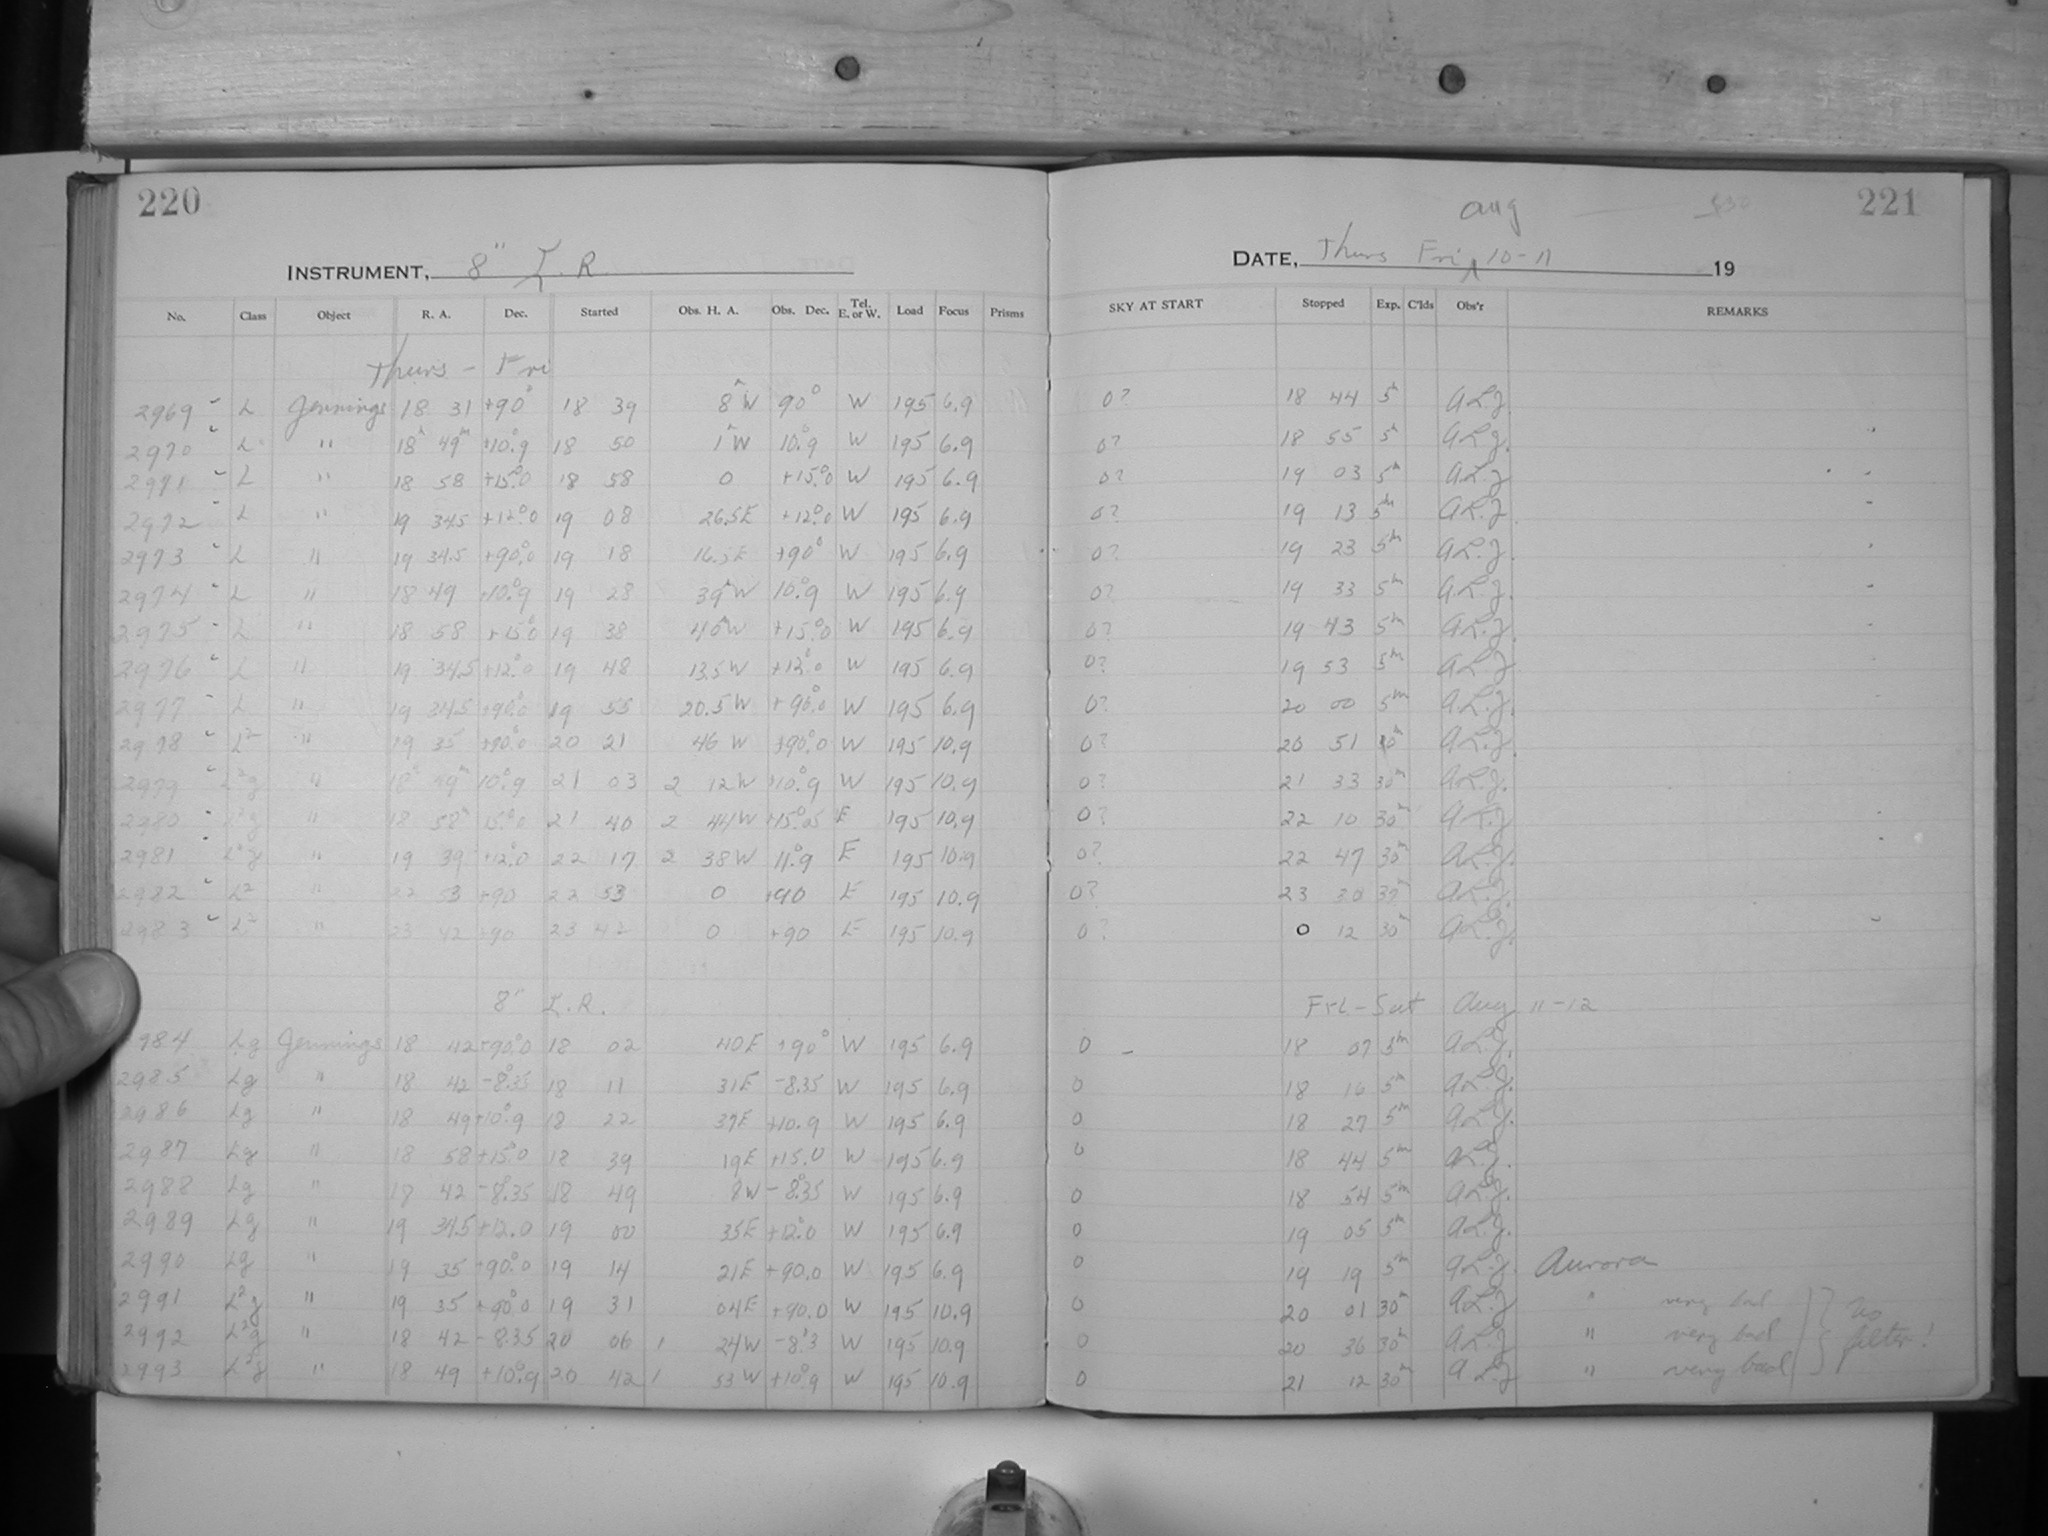 220
INSTRUMENT, 8" I.R
No. Class Object R. A. Dec. Started Obs. H. A. Obs. Dec. Tel. E. or W. Load Focus Prisms
Thurs - Fri
2969 L Jennings 18 31 +90° 18 39 8 W 90° W 195 6.9
2970 L " 18h 49m +10°.9 18 50 1 W 10°.9 W 195 6.9
2971 L " 18 58 +15°.0 18 58 0 +15°.0 W 195 6.9
2972 L " 19 34.5 +12°.0 19 08 26.5E +12°.0 W 195 6.9
2973 L " 19 34.5 +90°.0 19 18 16.5E +90° W 195 6.9
2974 L " 18 49 +10°.9 19 28 39 W 10°.9 W 195 6.9
2975 L " 18 58 +15°.0 19 38 40 W +15°.0 W 195 6.9
2976 L " 19 34.5 +12°.0 19 48 13.5 W +12°.0 W 195 6.9
2977 L " 19 34.5 +90°.0 19 55 20.5 W +90°.0 W 195 6.9
2978 L² " 19 35 +90°.0 20 21 46 W +90°.0 W 195 10.9
2979 L²g " 18h 49m 10°.9 21 03 2 12 W +10°.9 W 195 10.9
2980 L²g " 18 58 15°.0 21 40 2 44 W +15°.05 E 195 10.9
2981 L²g " 19 39 +12°.0 22 17 2 38 W 11°.9 E 195 10.9
2982 L² " 22 53 +90 22 53 0 +90 E 195 10.9
2983 L² " 23 42 +90 23 42 0 +90 E 195 10.9
8" I.R.
984 Lg Jennings 18 42 +90°.0 18 02 40E +90° W 195 6.9
2985 Lg " 18 42 -8°.35 18 11 31E -8.35 W 195 6.9
2986 Lg " 18 49 +10°.9 18 22 37E +10.9 W 195 6.9
2987 Lg " 18 58 +15°.0 18 39 19E +15.0 W 195 6.9
2988 Lg " 18 42 -8°.35 18 49 8W -8°.35 W 195 6.9
2989 Lg " 19 34.5 +12.0 19 00 35E +12°.0 W 195 6.9
2990 Lg " 19 35 +90°.0 19 14 21E +90.0 W 195 6.9
2991 L²g " 19 35 +90°.0 19 31 04E +90.0 W 195 10.9
2992 L²g " 18 42 -8.35 20 06 1 24W -8°.3 W 195 10.9
2993 L²g " 18 49 +10°.9 20 42 1 53 W +10°.9 W 195 10.9
221
Aug
DATE, Thurs Fri ^ 10-11 19
SKY AT START Stopped Exp. C'lds Obs'r REMARKS
0? 18 44 5m A.L.J.
0? 18 55 5m A.L.J.
0? 19 03 5m A.L.J.
0? 19 13 5m A.L.J.
0? 19 23 5m A.L.J.
0? 19 33 5m A.L.J.
0? 19 43 5m A.L.J.
0? 19 53 5m A.L.J.
0? 20 00 5m A.L.J.
0? 20 51 30m A.L.J.
0? 21 33 30m A.L.J.
0? 22 10 30m A.L.J.
0? 22 47 30m A.L.J.
0? 23 30 A.L.J.
0? 0 12 30m A.L.J.
Fri-Sat Aug 11-12
0 18 07 5m A.L.J.
0 18 16 5m A.L.J.
0 18 27 5m A.L.J.
0 18 44 5m A.L.J.
0 18 54 5m A.L.J.
0 19 05 5m A.L.J.
0 19 19 5m A.L.J. Aurora
0 20 01 30m A.L.J. " very bad
0 20 36 30m A.L.J. " very bad
0 21 12 30m A.L.J. " very bad
No filter!